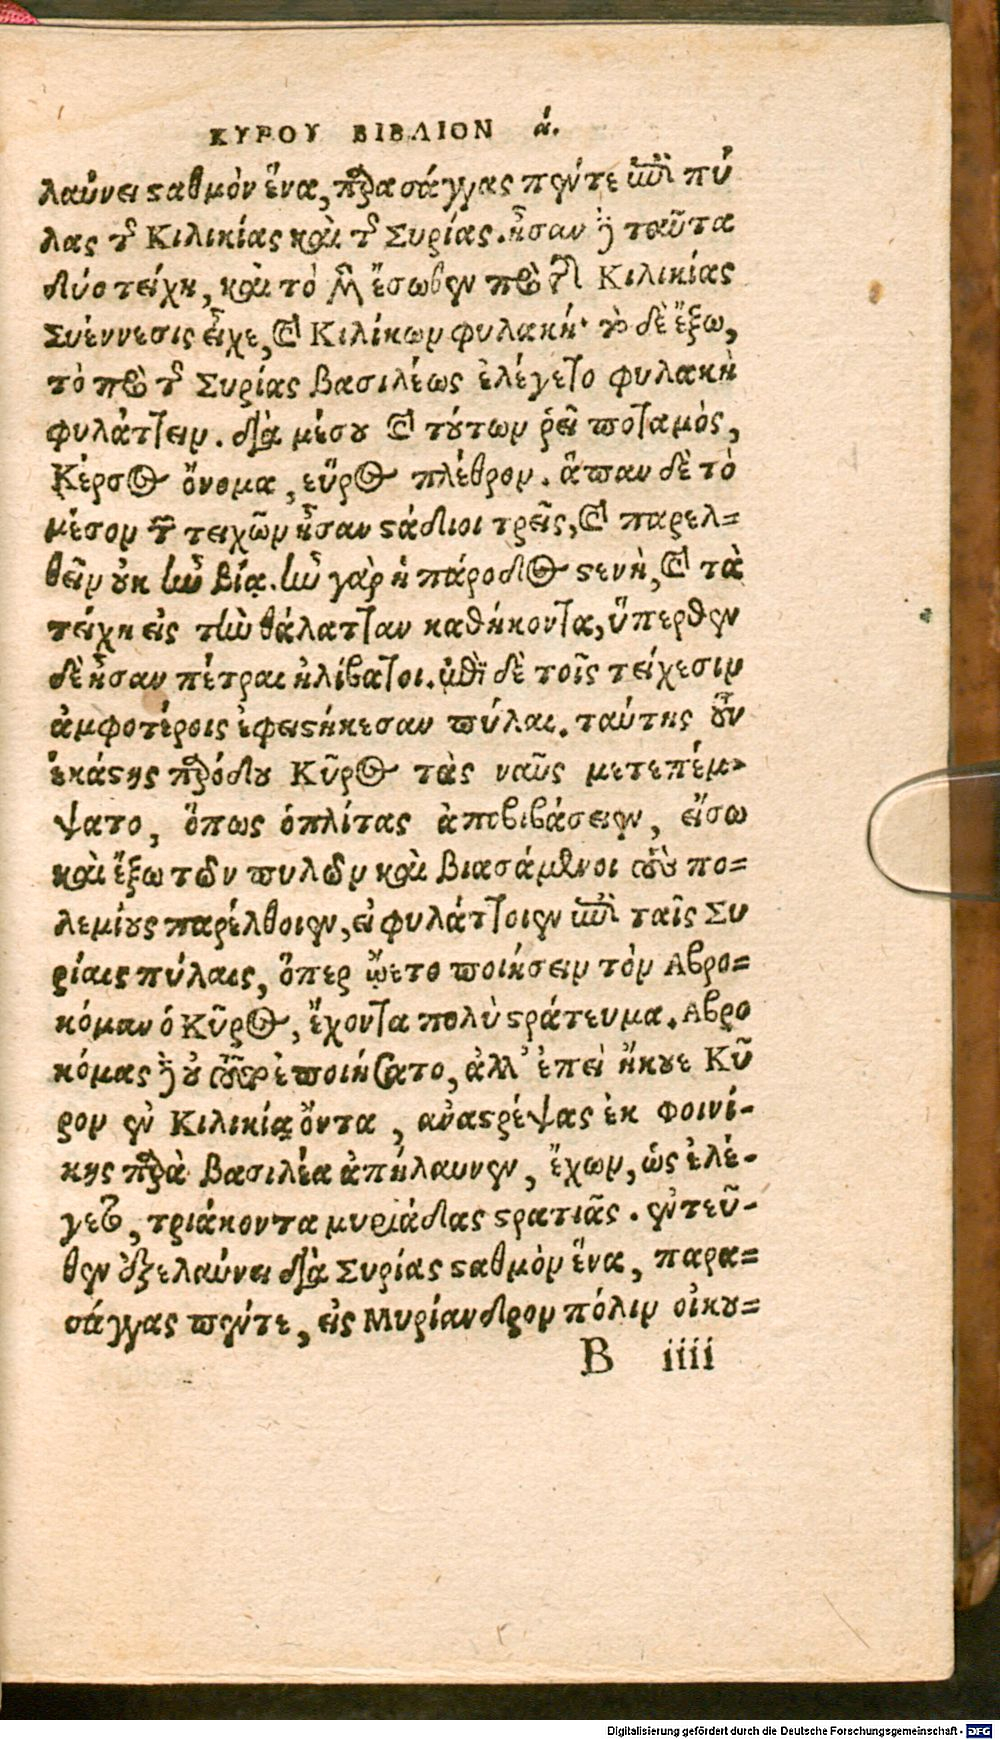 ΚΥΡΟΥ ΒΙΒΛΙΟΝ ά.
λαύνει ϛαθμὸν ἕνα, παρασάγγας πέντε ἐπὶ πύ
λας τῆς Κιλικίας καὶ τῆς Συρίας. ἦσαν δὲ ταῦτα
δύο τείχη, καὶ τὸ μὲν ἔσωθεν πρὸ τῆς Κιλικίας
Συέννεσις εἶχε, καὶ Κιλίκων φυλακή· τὸ δὲ ἔξω,
τὸ πρὸ τῆς Συρίας βασιλέως ἐλέγετο φυλακὴ
φυλάττειν. διὰ μέσου καὶ τούτων ῥεῖ ποταμὸς,
Κέρσος ὄνομα, εὖρος πλέθρον. ἅπαν δὲ τὸ
μέσον τῶν τειχῶν ἦσαν ϛάδιοι τρεῖς, καὶ παρελ=
θεῖν οὐκ ἦν βίᾳ. ἦν γὰρ ἡ πάροδος ϛενὴ, καὶ τὰ
τείχη εἰς τὴν θάλατταν καθήκοντα, ὕπερθεν
δὲ ἦσαν πέτραι ἠλίβατοι. ἐπὶ δὲ τοῖς τείχεσιν
ἀμφοτέροις ἐφειϛήκεσαν πύλαι. ταύτης οὖν
ἑκάϛης παρόδου Κῦρος τὰς ναῦς μετεπέμ-
ψατο, ὅπως ὁπλίτας ἀποβιβάσειεν, εἴσω
καὶ ἔξω τῶν πυλῶν καὶ βιασάμενοι τοὺς πο=
λεμίους παρέλθοιεν, εἰ φυλάττοιεν ἐπὶ ταῖς Συ
ρίαις πύλαις, ὅπερ ᾤετο ποιήσειν τὸν Αβρο=
κόμαν ὁ Κῦρος, ἔχοντα πολὺ ϛράτευμα. Αβρο
κόμας δὲ οὐ τοῦτο ἐποιήσατο, ἀλλ' ἐπεὶ ἤκουε Κῦ
ρον ἐν Κιλικίᾳ ὄντα, αναϛρέψας ἐκ Φοινί-
κης παρὰ βασιλέα ἀπήλαυνεν, ἔχων, ὡς ἐλέ-
γετο, τριάκοντα μυριάδας ϛρατιᾶς. ἐντεῦ-
θεν ἐξελαύνει διὰ Συρίας ϛαθμὸν ἕνα, παρα=
σάγγας πέντε, εἰς Μυρίανδρον πόλιν οἰκου=
B iiii
Digitalisierung gefördert durch die Deutsche Forschungsgemeinschaft - DFG